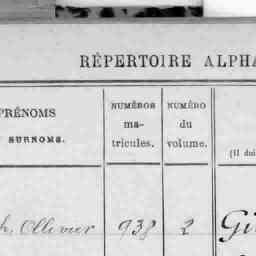 RÉPERTOIRE ALPHA
PRÉNOMS
SURNOMS.
NUMÉROS
ma-
tricules.
NUMÉRO
du
volume.
(Il dui
h. Ollivier 938 2 Gi